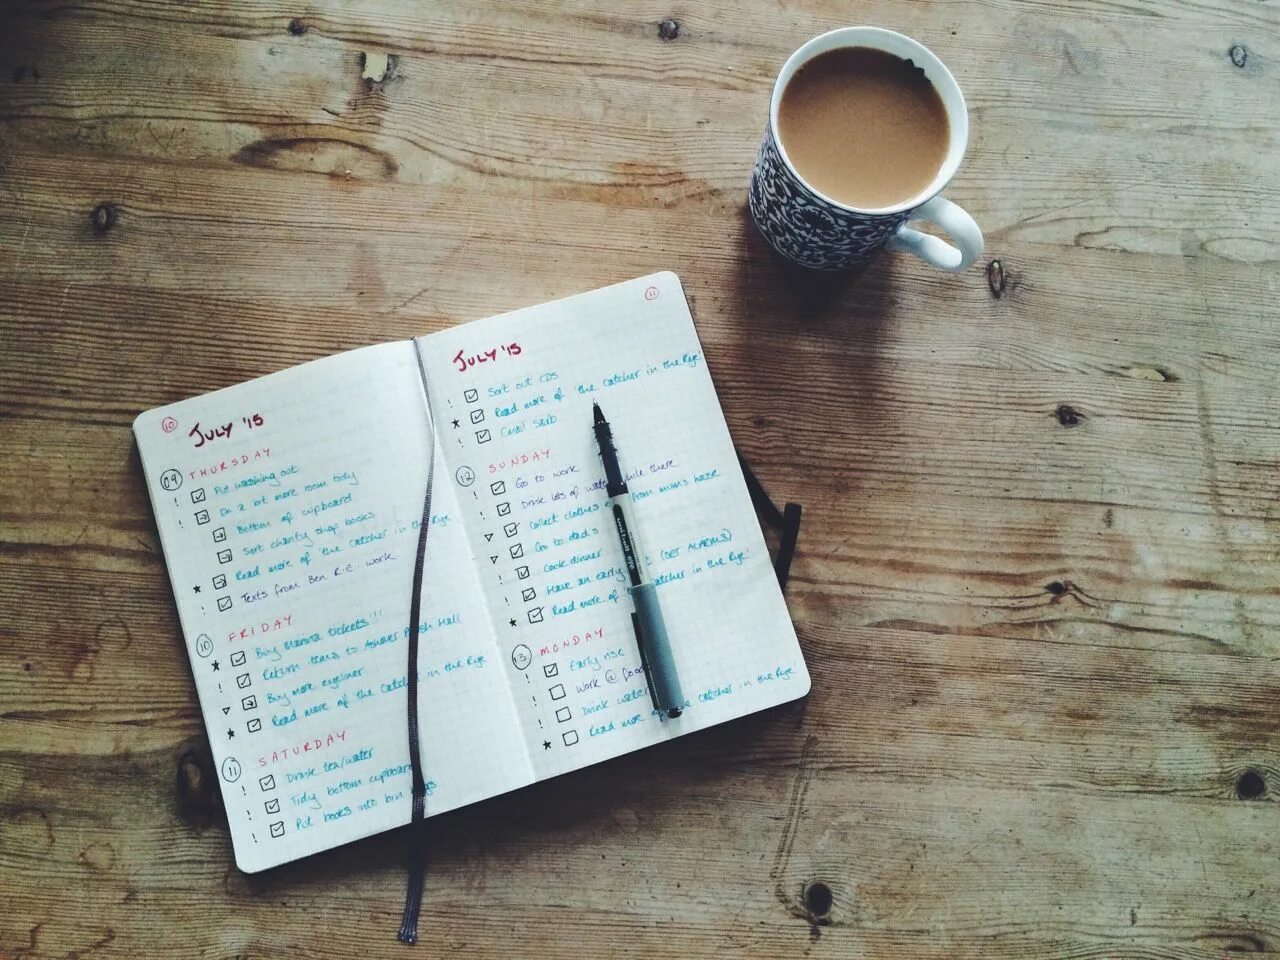 10
JULY '15
09 THURSDAY
! Put washing out
! Do a bit more room tidy
Bottom of cupboard
Sort charity shop books
★ Read more of 'the Catcher in the Rye'
! Texts from Ben R.E. work
10 FRIDAY
★ Buy Manna tickets!!!
! Return items to Ashover Parish Hall
▽ Buy more eyeliner
★ Read more of 'the Catcher in the Rye'
11 SATURDAY
! Drink tea/water
! Tidy bottom cupboard
! Put books into bin bags
11
JULY '15
! Sort out CDs
★ Read more of 'the catcher in the Rye'
! Email
12 SUNDAY
! Go to work
! Drink lots of water while there
▽ Collect clothes from mum's house
▽ Go to dad's
! Cook dinner
! Have an early (SET ALARMS)
★ Read more of catcher in the Rye'
13 MONDAY
! Early rise
! Work @
! Drink water
★ Read more of the catcher in the Rye'
uni-ball eye